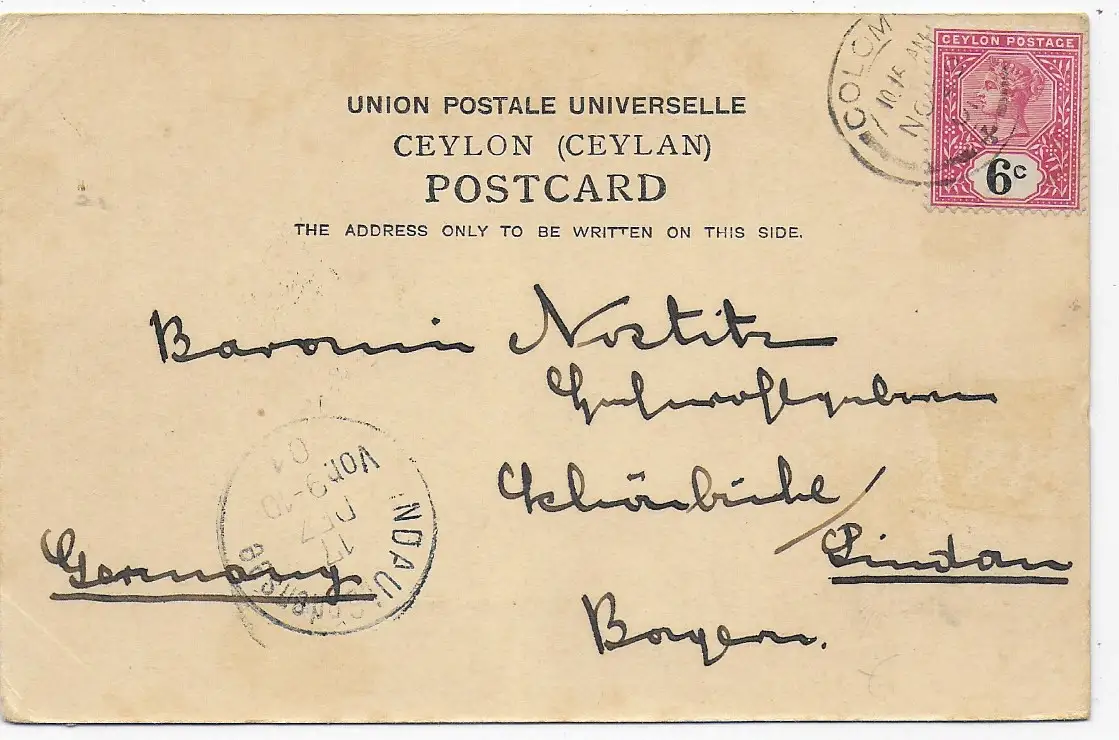 UNION POSTALE UNIVERSELLE
CEYLON (CEYLAN)
POSTCARD
THE ADDRESS ONLY TO BE WRITTEN ON THIS SIDE.
CEYLON POSTAGE
6c
COLOM
10.15 AM
NO
Baronin Nostitz
Hochwohlgeboren
Schönbühl/
Lindau
Bayern.
Germany
LINDAU
17
DEZ
Vor 9-10
01